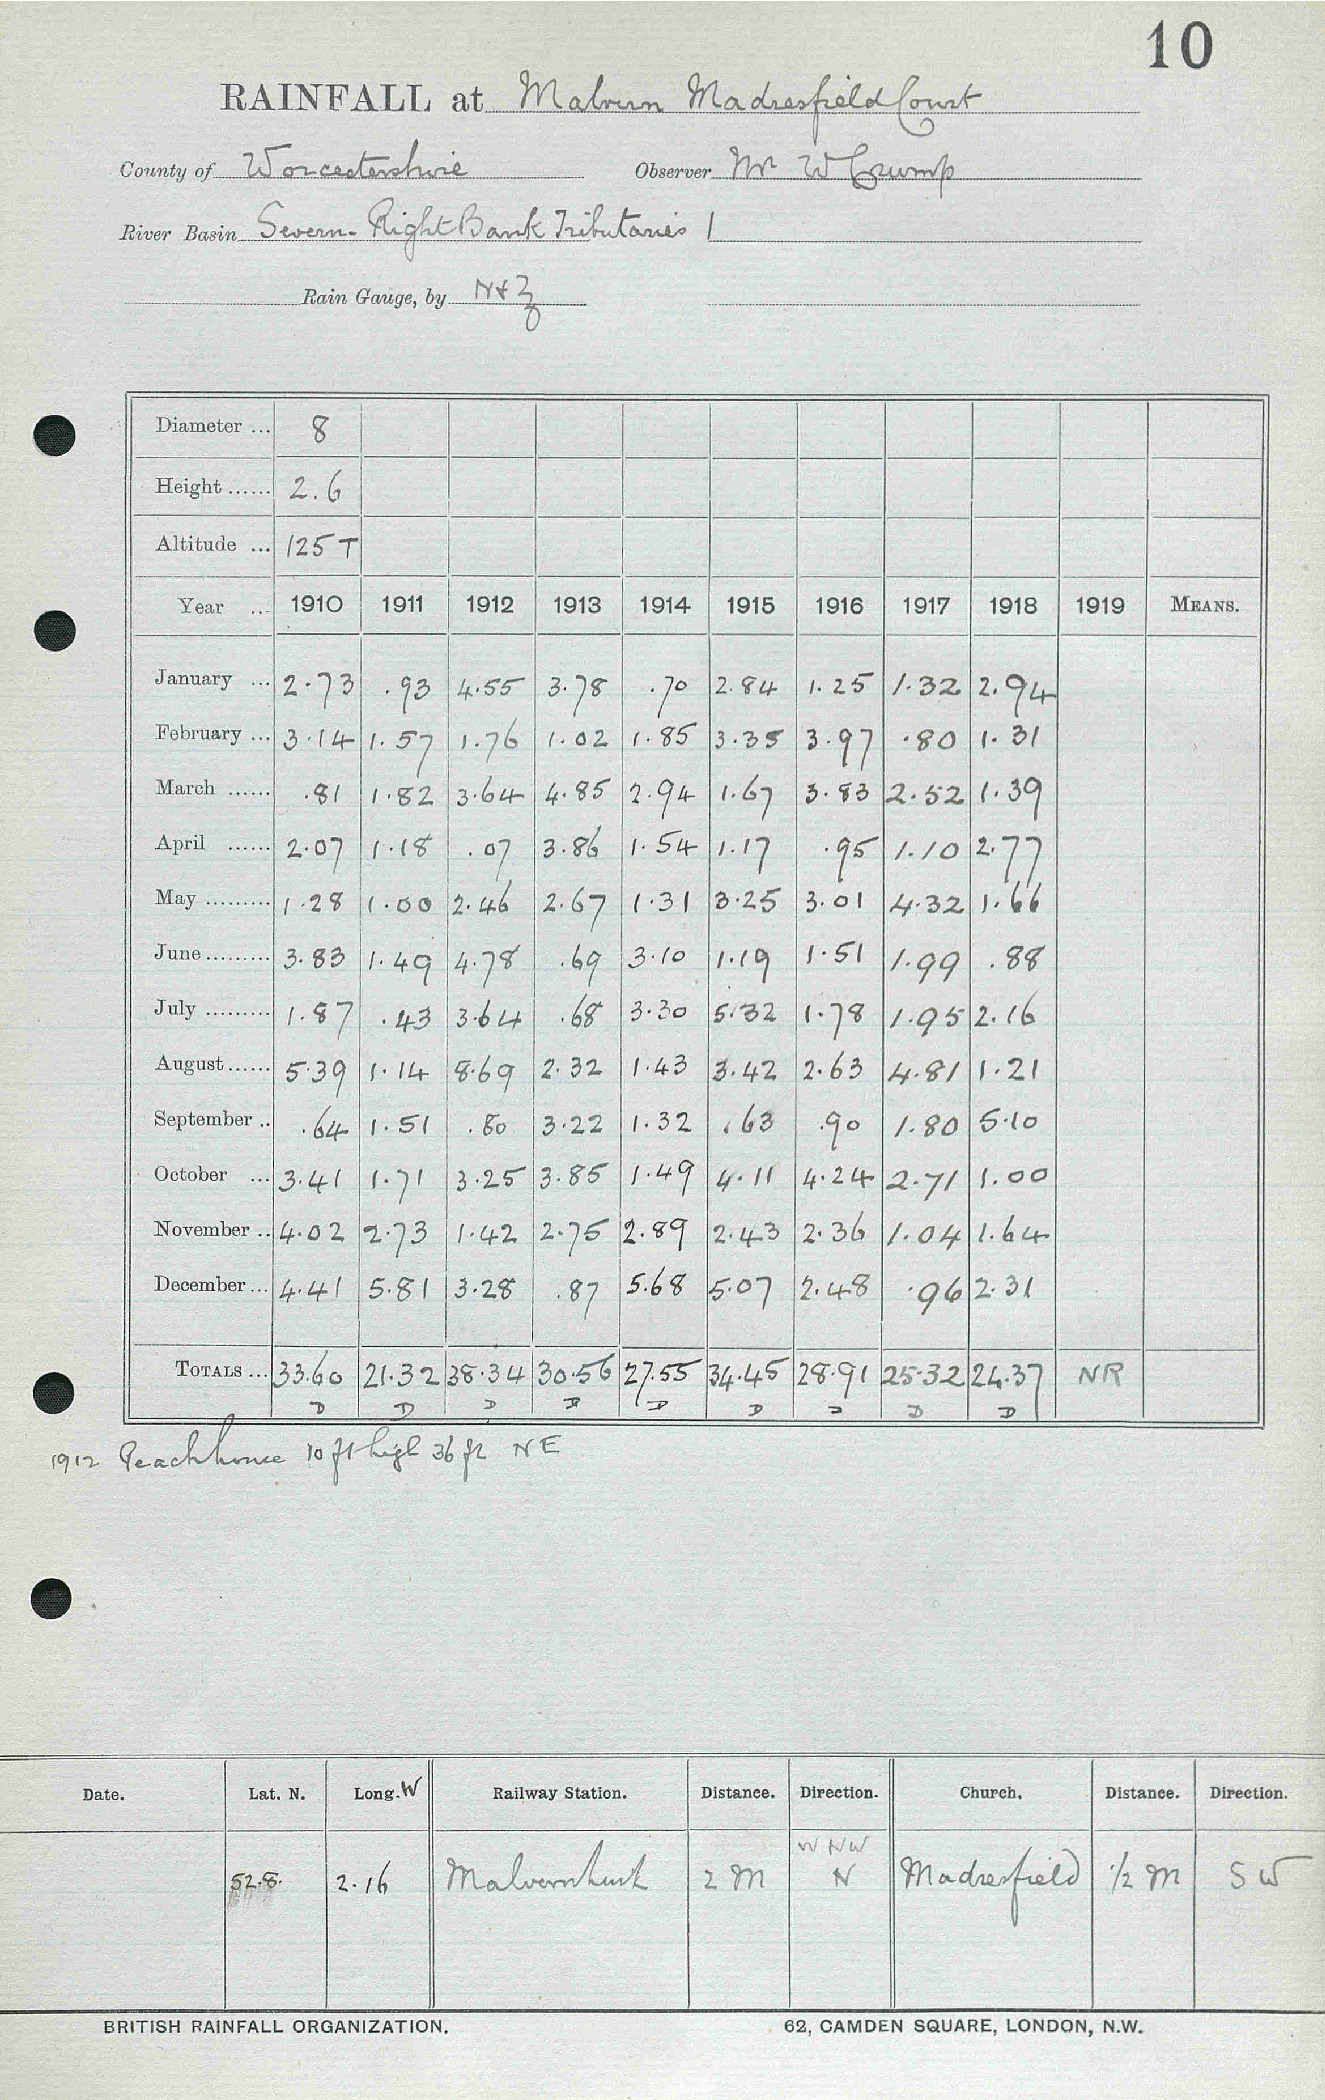 10
RAINFALL at Malvern Madresfield Court
County of Worcestershire Observer Mr W Crump
River Basin Severn - Right Bank Tributaries 1
Rain Gauge, by N & Z
Diameter ... 8
Height ...... 2.6
Altitude ... 125 T
Year ... 1910 1911 1912 1913 1914 1915 1916 1917 1918 1919 MEANS.
January ... 2.73 .93 4.55 3.78 .70 2.84 1.25 1.32 2.94
February ... 3.14 1.57 1.76 1.02 1.85 3.35 3.97 .80 1.31
March ...... .81 1.82 3.64 4.85 2.94 1.67 3.83 2.52 1.39
April ...... 2.07 1.18 .07 3.86 1.54 1.17 .95 1.10 2.77
May ......... 1.28 1.00 2.46 2.67 1.31 3.25 3.01 4.32 1.66
June ......... 3.83 1.49 4.78 .69 3.10 1.19 1.51 1.99 .88
July ......... 1.87 .43 3.64 .68 3.30 5.32 1.78 1.95 2.16
August ...... 5.39 1.14 8.69 2.32 1.43 3.42 2.63 4.81 1.21
September .. .64 1.51 .80 3.22 1.32 .63 .90 1.80 5.10
October ... 3.41 1.71 3.25 3.85 1.49 4.11 4.24 2.71 1.00
November .. 4.02 2.73 1.42 2.75 2.89 2.43 2.36 1.04 1.64
December ... 4.41 5.81 3.28 .87 5.68 5.07 2.48 .96 2.31
TOTALS ... 33.60 21.32 38.34 30.56 27.55 34.45 28.91 25.32 24.37 NR
D D D D D D D D D
1912 Peachhouse 10 ft high 36 ft NE
Date. Lat. N. Long. W Railway Station. Distance. Direction. Church. Distance. Direction.
W NW
52.8. 2.16 Malvern Link 2 M N Madresfield 1/2 M SW
BRITISH RAINFALL ORGANIZATION. 62, CAMDEN SQUARE, LONDON, N.W.